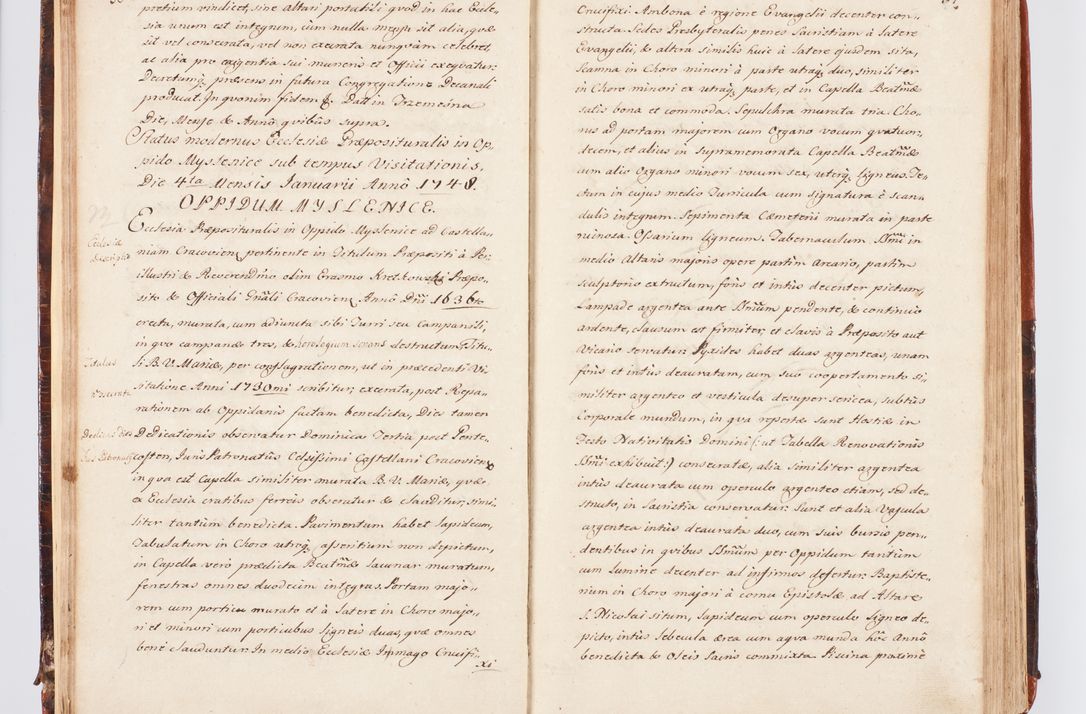 pretium vindicet, sine altari portatili quod in hac Eccle„
sia unum est integrum, cum nulla
sit vel consecrata, vel non execrata nunqvam celebret
ac alia pro exigentia sui muneris et Officii exeqvatur.
Decretumq præsens in futura Congregatione Decanali
producat. In qvorum fidem &. Datt in Trzemesna
Die, Mense & Annô qvibus supra.
Status modernus Ecclesiæ Præposituralis in Op„
pido Myslenice sub tempus Visitationis.
Die 4ta Mensis Januarii Annô 1748.
OPPIDUM MYSLENICE.
Ecclesia descripta
Ecclesia Præposituralis in Oppido Myslenice ad Castella„
niam Cracovien pertinente in Titulum Præpositi à Per
illustri & Reverendmo olim Erasmo Kretkowski Præpo„
sito & Officiali Gnãli Cracovien Annô Dni 1636to
erecta, murata, cum adiuncta sibi Turri seu Campanili,
in qvo campanæ tres, & horologium sonans destructum, Titu„
Titulus
li B. V. Mariæ, per conflagrationem, ut in præcedenti Vi„
Execrata
sitatione Anni 1730mi scribitur, execrata, post Repa„
rationem ab Oppidanis factam benedicta, Dies tamen
Dedicationis
Dedicationis observatur Dominica Tertia post Pente„
Jus Patronatus
costen, Juris Patronatûs Celsissimi Castellani Cracovien
in qva est Capella similiter murata B. V. Mariæ, qvæ
ex Ecclesia cratibus ferreis obseratur & clauditur, simi„
liter tantùm benedicta. Pavimentum habet lapideum,
Tabulatum in Choro utroq asseritium non depictum,
in Capella verò prædicta Beatmæ lacunar muratum,
fenestras omnes duodecim integras. Portam majo„
rem cum porticu murato et à latere in Choro majo„
ri et minori cum porticubus ligneis duas, qvæ omnes
benè clauduntur. In medio Ecclesiæ Immago Crucifi„
xi
Crucifixi. Ambona è regione Evangelii decenter con„
structa. Sedes Presbyteralis penes Sacristiam à latere
Evangelii, & altera similis huic à latere ejusdem sita,
Scamna in Choro minori à parte utraq duo, similiter
in Choro minori ex utraq parte, et in Capella Beatmæ
satis bona et commoda. Sepulchra murata tria. Cho„
rus ad portam majorem cum Organo vocum qvatuor„
decem, et alius in supramemorata Capella Beatmæ
cum alio Organo minori vocum sex, uterq ligneus. Te„
ctum in cujus medio Turricula cum signatura è scan„
dulis integrum. Sepimenta Cæmeterii murata in parte
ruinosa. Ossarium ligneum. Tabernaculum Ssmi in
medio Altaris majoris opere partim Arcario, partim
sculptorio extructum, foris et intùs decenter pictum,
Lampade argentea ante Ssmum pendente, & continuo
ardente, clausum est firmiter, et clavis à Præposito aut
Vicario servatur. Pyxides habet duas argenteas, unam
foris et intùs deauratam, cum suo coopertamento si„
militer argenteo et vesticula desuper sericea, subtùs
Corporale mundum, in qva repertæ sunt Hostiæ in
Festo Nativitatis Domini (: ut Tabella Renovationis
Ssmi exhibuit :) consecratæ, alia similiter argentea
intùs deaurata cum operculo argenteo etiam, sed de„
structo, in Sacristia conservatur. Sunt et alia Vascula
argentea intùs deaurata duo, cum suis bursis pen„
dentibus in qvibus Ssmum per Oppidum tantùm
cum lumine decenter ad infirmos defertur. Baptiste„
rium in Choro majori à cornu Epistolæ ad Altare
S. Nicolai situm, lapideum cum operculo ligneo de„
picto, intùs lebecula ærea cum aqva munda hôc Annô
benedicta & Oleis Sacris commixta. Piscina proximè